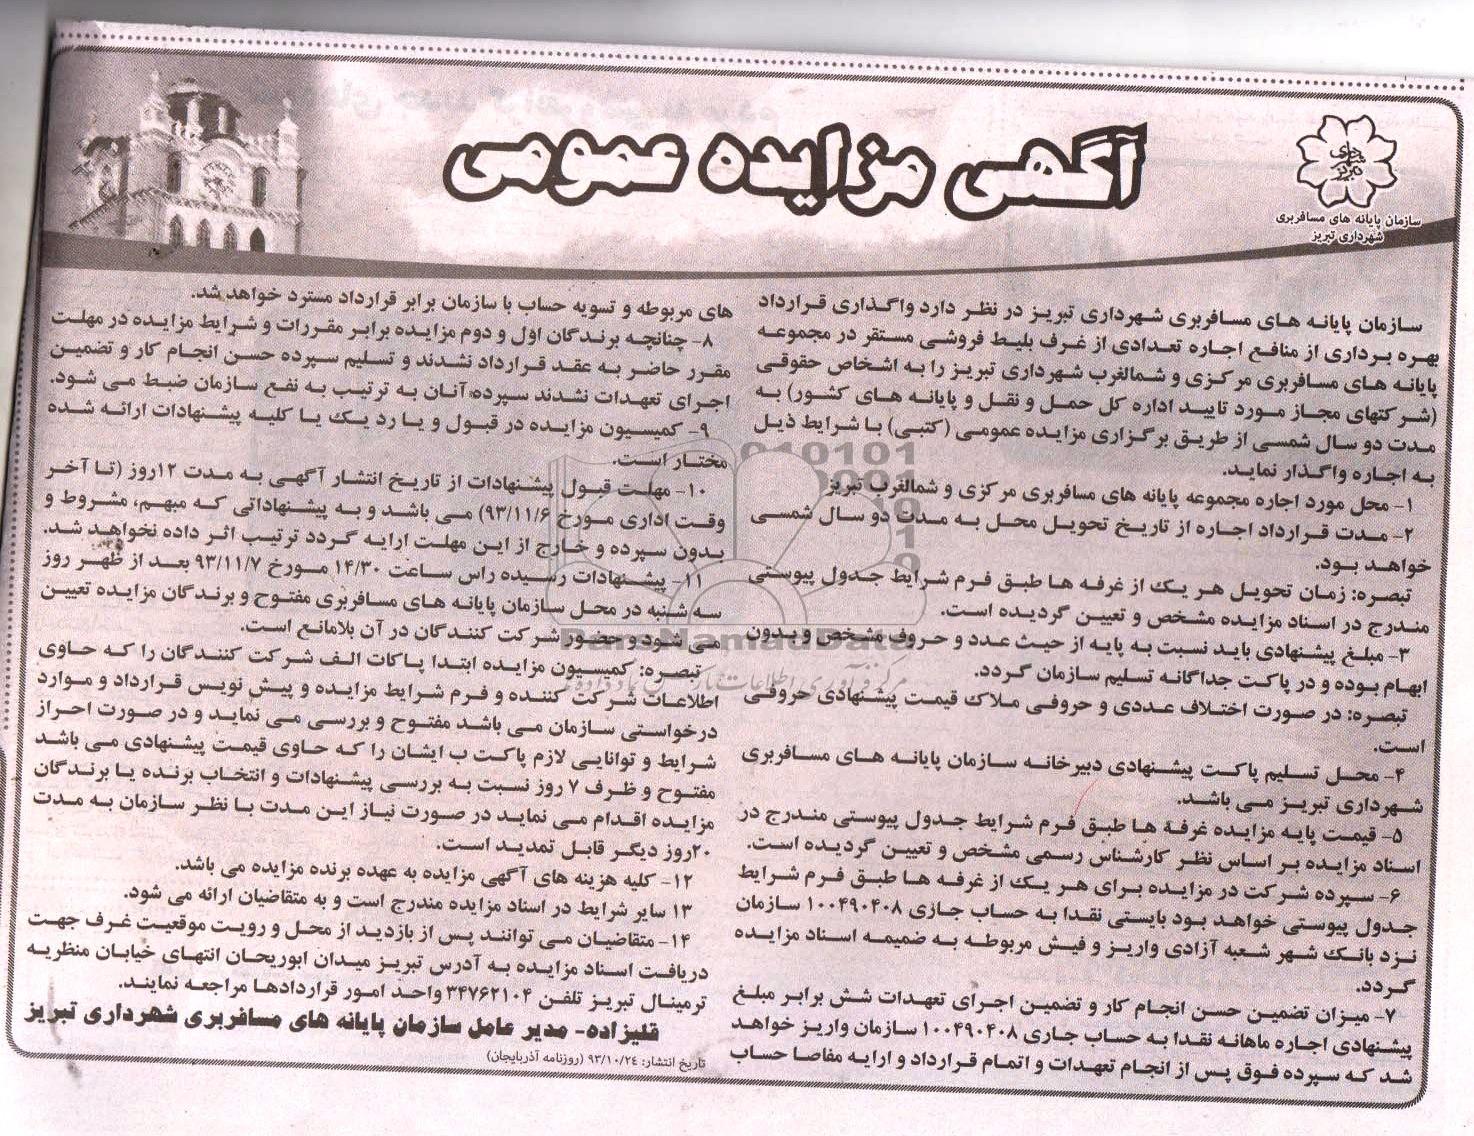 آگهی مزایده عمومی
شورای
شهر
تبریز
سازمان پایانه های مسافربری
شهرداری تبریز
سازمان پایانه های مسافربری شهرداری تبریز در نظر دارد واگذاری قرارداد
بهره برداری از منافع اجاره تعدادی از غرف بلیط فروشی مستقر در مجموعه
پایانه های مسافربری مرکزی و شمالغرب شهرداری تبریز را به اشخاص حقوقی
(شرکتهای مجاز مورد تایید اداره کل حمل و نقل و پایانه های کشور) به
مدت دو سال شمسی از طریق برگزاری مزایده عمومی (کتبی) با شرایط ذیل
به اجاره واگذار نماید.
۱- محل مورد اجاره مجموعه پایانه های مسافربری مرکزی و شمالغرب تبریز
۲- مدت قرارداد اجاره از تاریخ تحویل محل به مدت دو سال شمسی
خواهد بود.
تبصره: زمان تحویل هر یک از غرفه ها طبق فرم شرایط جدول پیوستی
مندرج در اسناد مزایده مشخص و تعیین گردیده است.
۳- مبلغ پیشنهادی باید نسبت به پایه از حیث عدد و حروف مشخص و بدون
ابهام بوده و در پاکت جداگانه تسلیم سازمان گردد.
تبصره: در صورت اختلاف عددی و حروفی ملاک قیمت پیشنهادی حروفی
است.
۴- محل تسلیم پاکت پیشنهادی دبیرخانه سازمان پایانه های مسافربری
شهرداری تبریز می باشد.
۵- قیمت پایه مزایده غرفه ها طبق فرم شرایط جدول پیوستی مندرج در
اسناد مزایده بر اساس نظر کارشناس رسمی مشخص و تعیین گردیده است.
۶- سپرده شرکت در مزایده برای هر یک از غرفه ها طبق فرم شرایط
جدول پیوستی خواهد بود بایستی نقدا به حساب جاری ۱۰۰۴۹۰۴۰۸ سازمان
نزد بانک شهر شعبه آزادی واریز و فیش مربوطه به ضمیمه اسناد مزایده
گردد.
۷- میزان تضمین حسن انجام کار و تضمین اجرای تعهدات شش برابر مبلغ
پیشنهادی اجاره ماهانه نقدا به حساب جاری ۱۰۰۴۹۰۴۰۸ سازمان واریز خواهد
شد که سپرده فوق پس از انجام تعهدات و اتمام قرارداد و ارایه مفاصا حساب
های مربوطه و تسویه حساب با سازمان برابر قرارداد مسترد خواهد شد.
۸- چنانچه برندگان اول و دوم مزایده برابر مقررات و شرایط مزایده در مهلت
مقرر حاضر به عقد قرارداد نشدند و تسلیم سپرده حسن انجام کار و تضمین
اجرای تعهدات نشدند سپرده آنان به ترتیب به نفع سازمان ضبط می شود.
۹- کمیسیون مزایده در قبول و یا رد یک یا کلیه پیشنهادات ارائه شده
مختار است.
۱۰- مهلت قبول پیشنهادات از تاریخ انتشار آگهی به مدت ۱۲روز (تا آخر
وقت اداری مورخ ۹۳/۱۱/۶) می باشد و به پیشنهاداتی که مبهم، مشروط و
بدون سپرده و خارج از این مهلت ارایه گردد ترتیب اثر داده نخواهد شد.
۱۱- پیشنهادات رسیده راس ساعت ۱۴/۳۰ مورخ ۹۳/۱۱/۷ بعد از ظهر روز
سه شنبه در محل سازمان پایانه های مسافربری مفتوح و برندگان مزایده تعیین
می شود و حضور شرکت کنندگان در آن بلامانع است.
تبصره: کمیسیون مزایده ابتدا پاکات الف شرکت کنندگان را که حاوی
اطلاعات شرکت کننده و فرم شرایط مزایده و پیش نویس قرارداد و موارد
درخواستی سازمان می باشد مفتوح و بررسی می نماید و در صورت احراز
شرایط و توانایی لازم پاکت ب ایشان را که حاوی قیمت پیشنهادی می باشد
مفتوح و ظرف ۷ روز نسبت به بررسی پیشنهادات و انتخاب برنده یا برندگان
مزایده اقدام می نماید در صورت نیاز این مدت با نظر سازمان به مدت
۲۰روز دیگر قابل تمدید است.
۱۲- کلیه هزینه های آگهی مزایده به عهده برنده مزایده می باشد.
۱۳ سایر شرایط در اسناد مزایده مندرج است و به متقاضیان ارائه می شود.
۱۴- متقاضیان می توانند پس از بازدید از محل و رویت موقعیت غرف جهت
دریافت اسناد مزایده به آدرس تبریز میدان ابوریحان انتهای خیابان منظریه
ترمینال تبریز تلفن ۳۴۷۶۲۱۰۴ واحد امور قراردادها مراجعه نمایند.
قلیزاده- مدیر عامل سازمان پایانه های مسافربری شهرداری تبریز
تاریخ انتشار: ۹۳/۱۰/۲۴ (روزنامه آذربایجان)
ParsNamadData